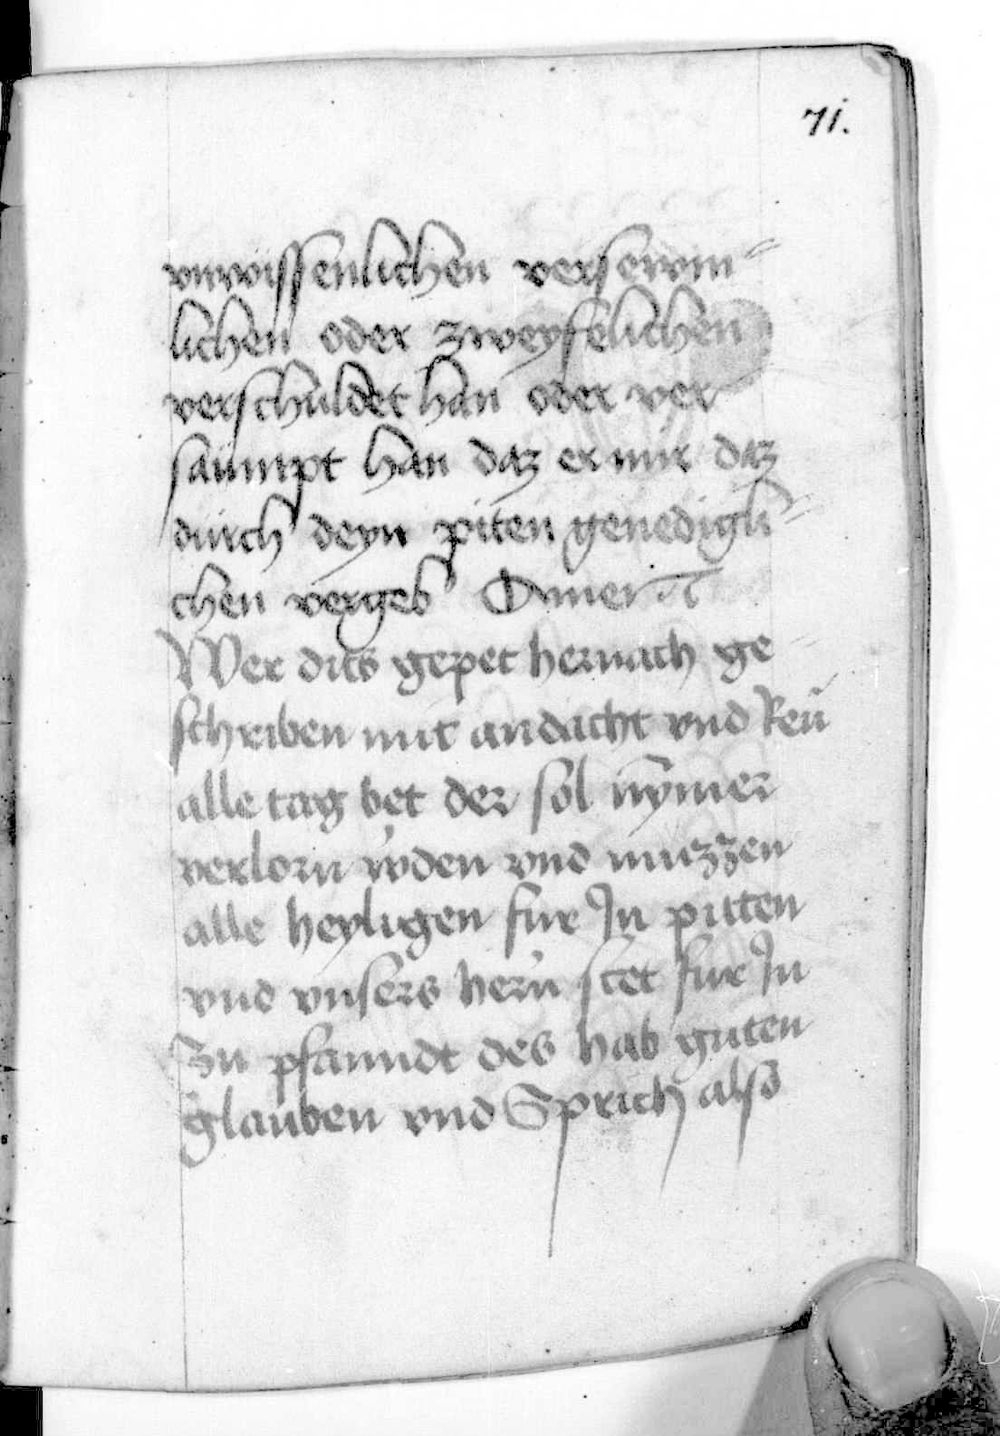 71.
vnwissenlichen versewm⸗
lichen oder zweyfelichen
verschuldet han oder ver
saumpt han daz er mir daz
durch deyn piten genedigli⸗
chen vergeb Amen
Wer dits gepet hernach ge
schriben mit andacht vnd Reu
alle tag bet der sol nymer
verlorn wden vnd muezzen
alle heyligen fur In pitten
vnd vnsers hern stet fur In
Zu pfanndt des hab guten
glauben vnd Sprich also